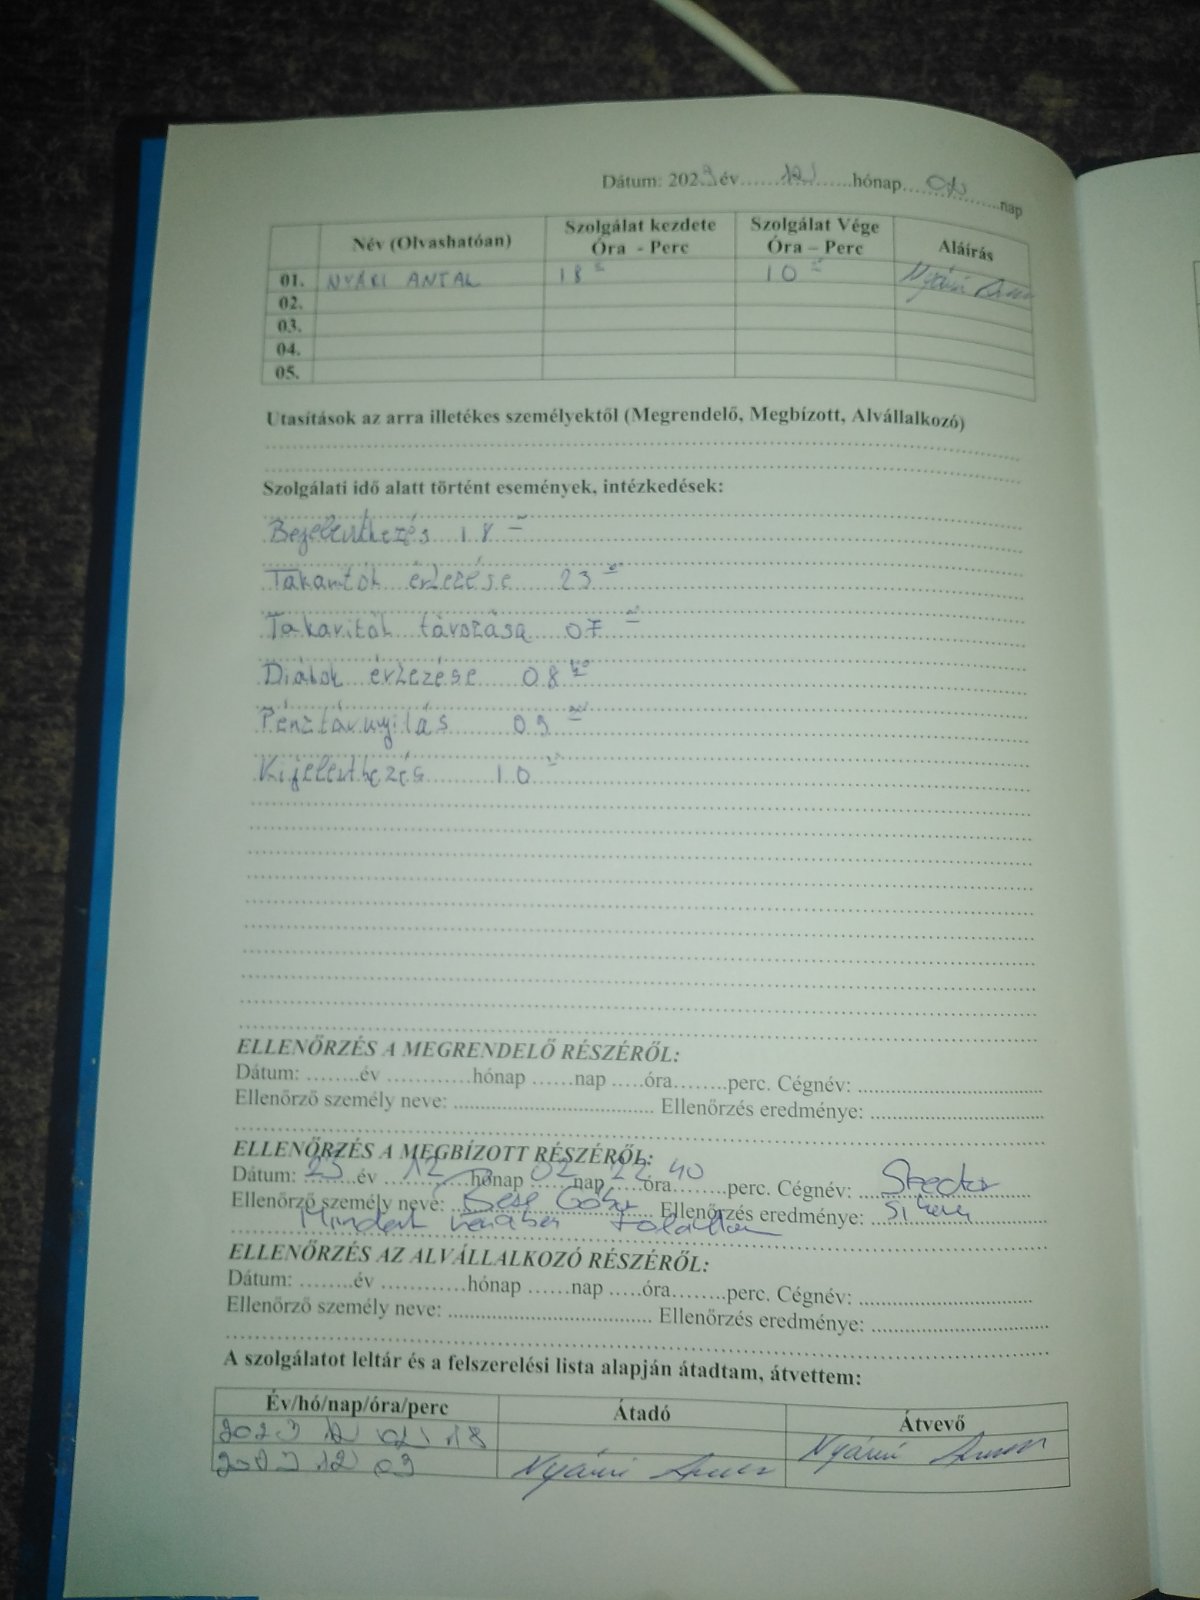 Dátum: 2023 év 12 hónap 02 nap
Név (Olvashatóan) Szolgálat kezdete Óra - Perc Szolgálat Vége Óra – Perc Aláírás
01. NYÁRI ANTAL 18 10 Nyári
02.
03.
04.
05.
Utasítások az arra illetékes személyektől (Megrendelő, Megbízott, Alvállalkozó)
Szolgálati idő alatt történt események, intézkedések:
Bejelentkezés 18
Takarítók érkezése 23
Takarítók távozása 07
Diákok érkezése 08
Pénztárnyitás 09
Kijelentkezés 10
ELLENŐRZÉS A MEGRENDELŐ RÉSZÉRŐL:
Dátum: ........év ............hónap ......nap .....óra........perc. Cégnév: ..............................
Ellenőrző személy neve: .................................... Ellenőrzés eredménye: ..............................
ELLENŐRZÉS A MEGBÍZOTT RÉSZÉRŐL:
Dátum: 23 év 12 hónap 02 nap 22 óra 40 perc. Cégnév:
Ellenőrző személy neve: Gábor Ellenőrzés eredménye:
Mindent rendben találtam
ELLENŐRZÉS AZ ALVÁLLALKOZÓ RÉSZÉRŐL:
Dátum: ........év ............hónap ......nap .....óra........perc. Cégnév: ..............................
Ellenőrző személy neve: .................................... Ellenőrzés eredménye: ..............................
A szolgálatot leltár és a felszerelési lista alapján átadtam, átvettem:
Év/hó/nap/óra/perc Átadó Átvevő
2023 12 02 18 Nyári
2023 12 03 Nyári